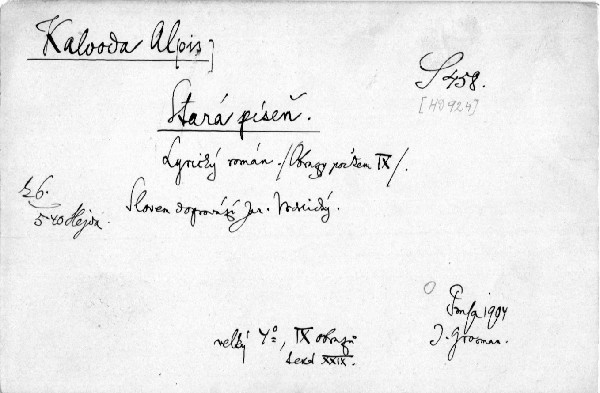 Kalvoda Alois]
S 458.
[HD 924]
Stará píseň.
Lyrický román. /Obrazy počtem IX/.
26.
540 Hejda.
Sloven doprovází Jar. Vrchlický.
Praha 1904
J. Grosman.
velký 4°, IX obrazů
textu XXIX.